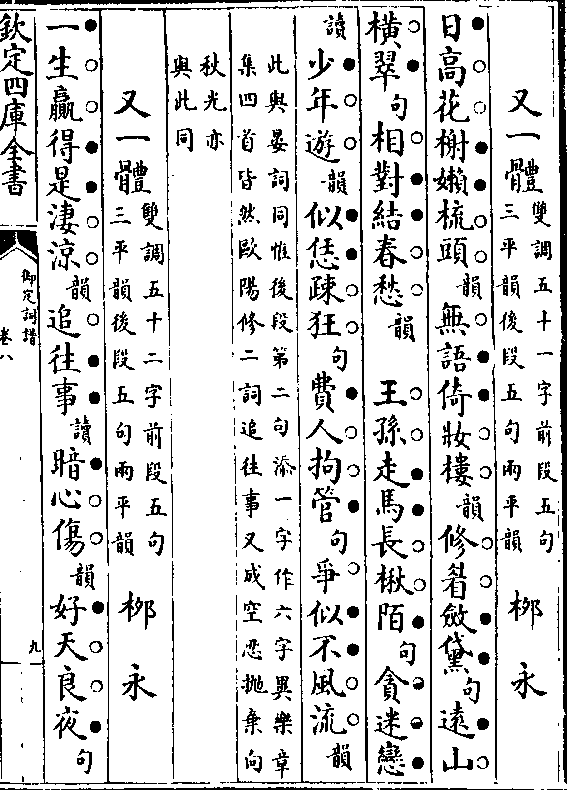 又一體
雙調五十一字前段五句
三平韻後段五句兩平韻
栁永
日高花榭嬾梳頭韻無語倚妝樓韻修眉斂黛句遠山
橫翠句相對結春愁韻王孫走馬長楸陌句貪迷戀
讀少年遊韻似恁疎狂句費人拘管句爭似不風流韻
此與晏詞同惟後段第二句添一字作六字異樂章
集四首皆然歐陽修二詞追往事又成空恐拋棄向
秋光亦
與此同
又一體
雙調五十二字前段五句
三平韻後段五句兩平韻
栁永
一生贏得是淒涼韻追往事讀暗心傷韻好天良夜句
欽定四庫全書
御定詞譜
卷八
九